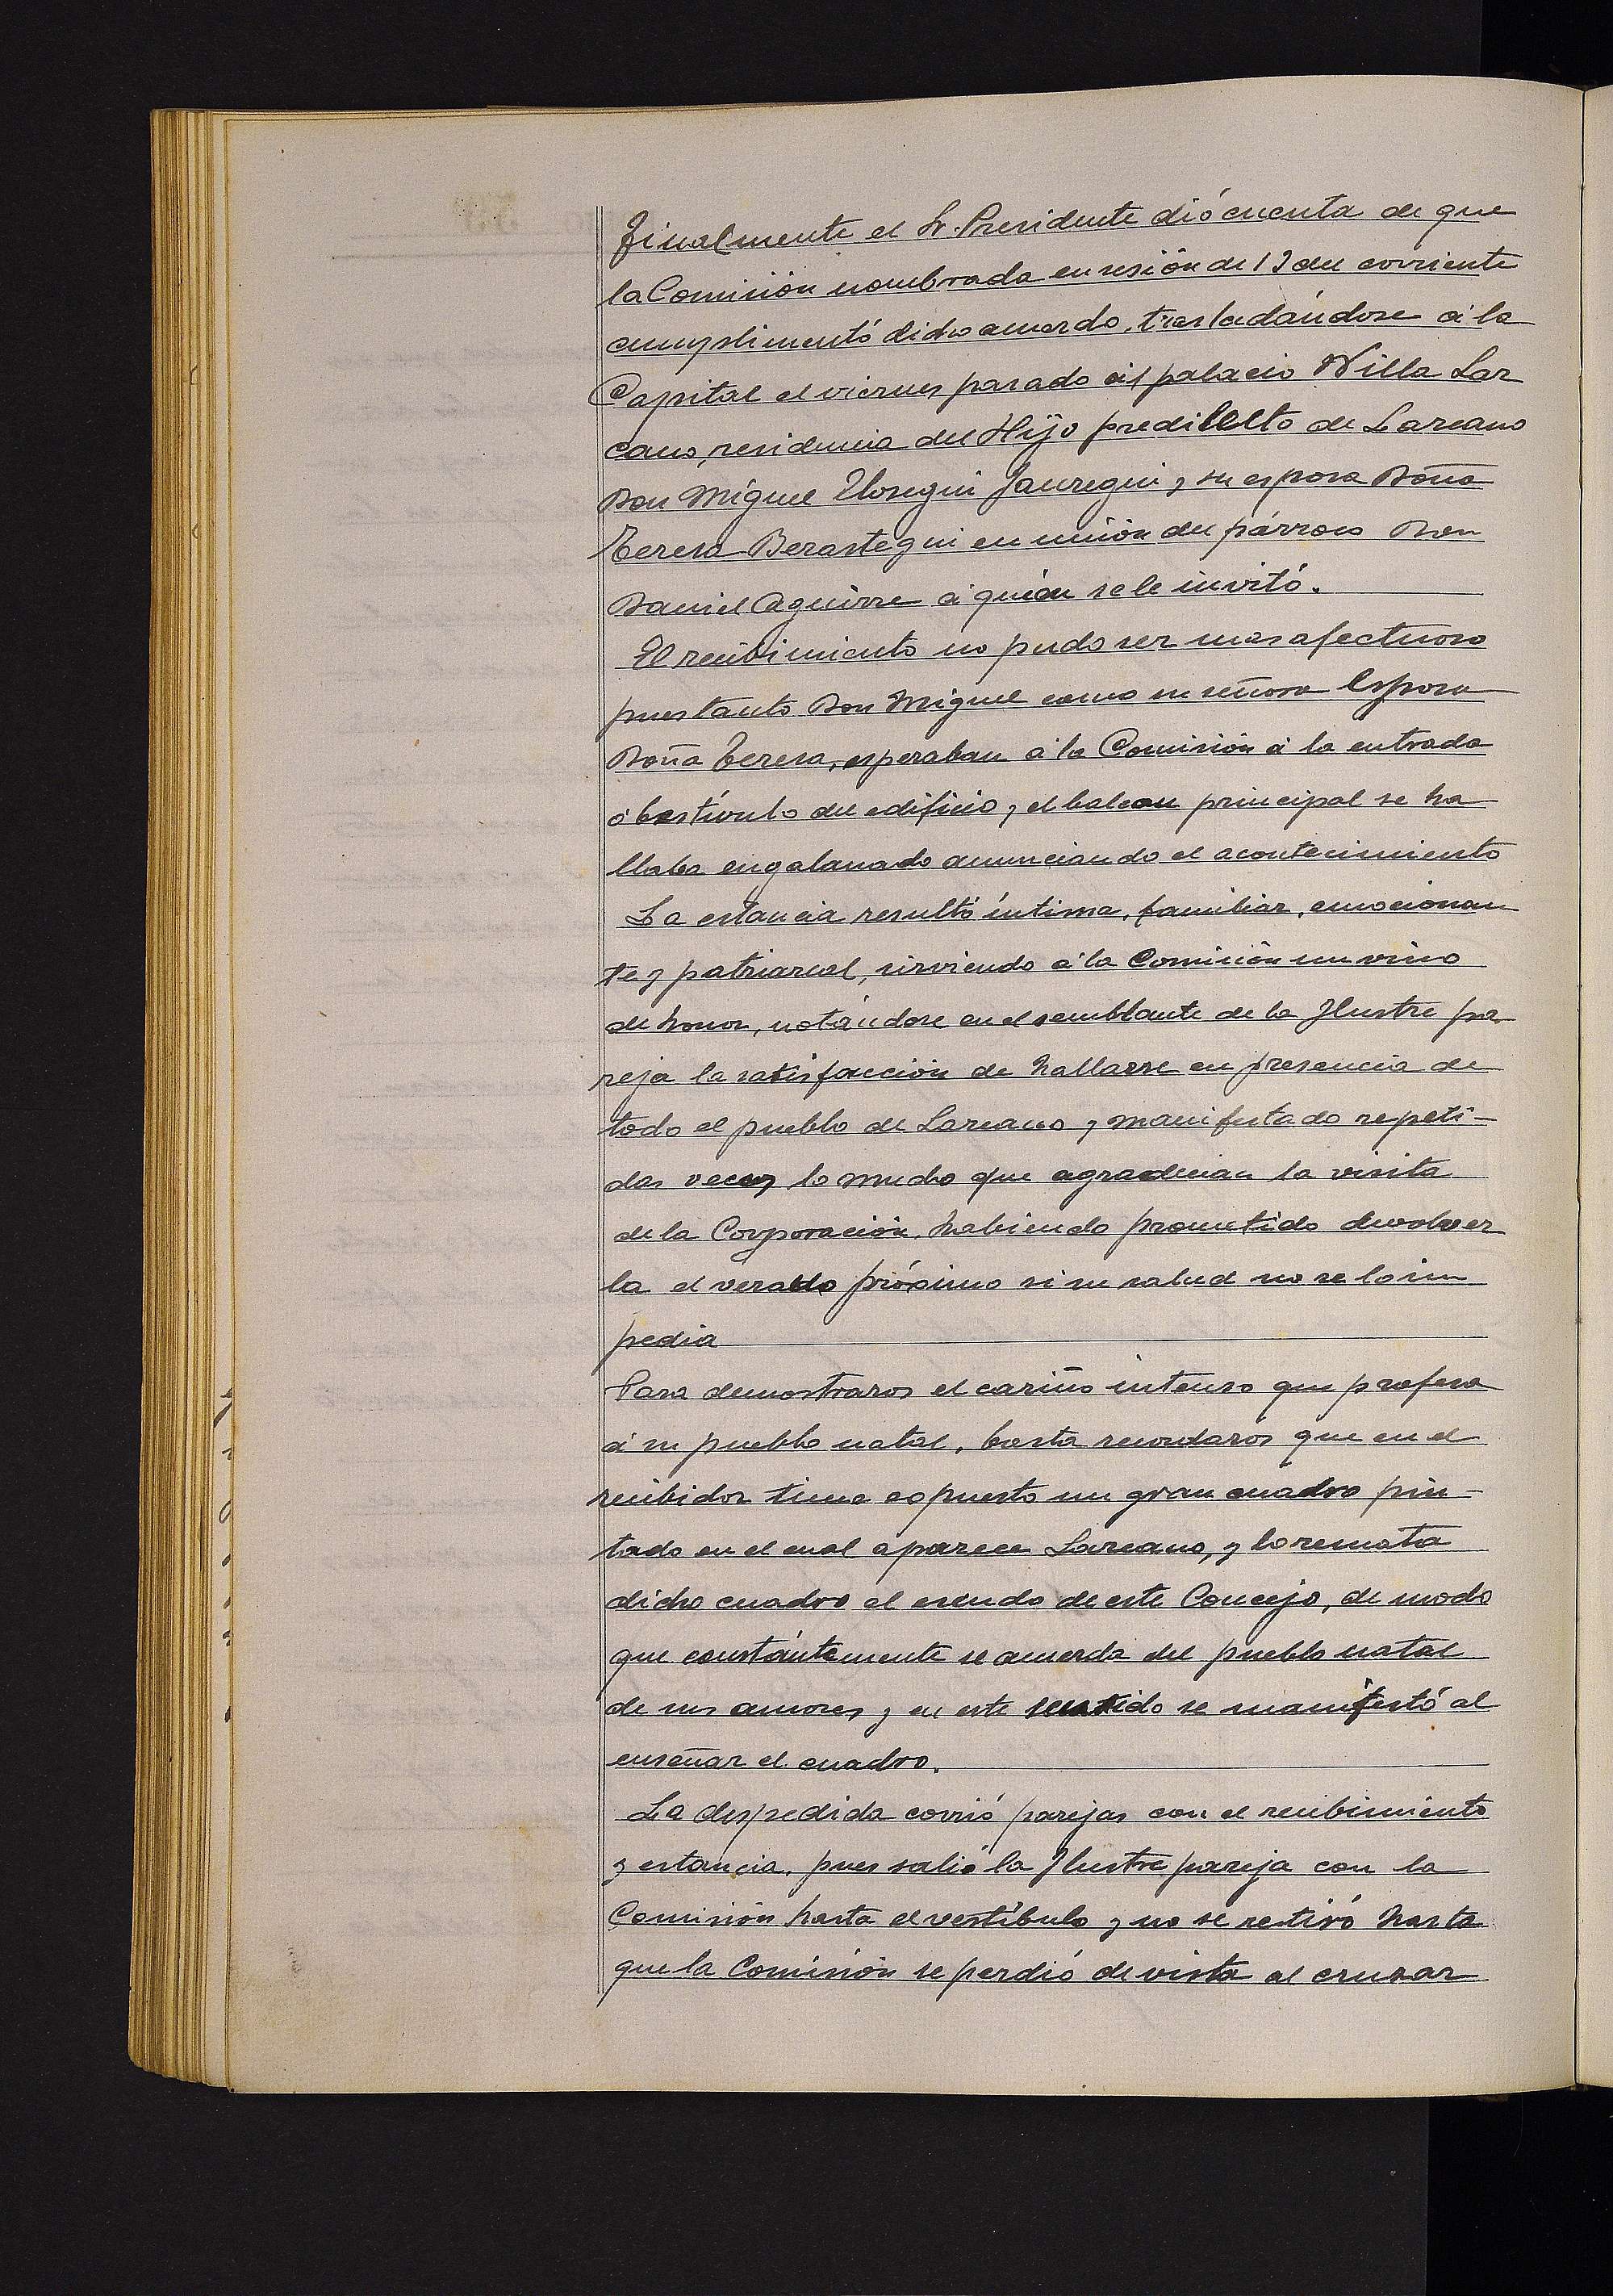 Finalmente el Sr. Presidente dió cuenta de que
la Comisión nombrada en sesión de 19 del corriente
cumplimentó dicho acuerdo, trasladándose á la
Capital el viernes pasado ail palacio Willa Laz
cano, residencia del Hijo predilecto de Lazcano
Don Miguel Elosegui Jauregui y su esposa Doña
Teresa Berastegui en unión del párroco Don
Daniel Aguirre á quién se le invitó.
El recibimiento no pudo ser mas afectuoso
pues tanto Don Miguel como su señora Esposa
Doña Teresa, esperaban á la Comisión á la entrada
ó bestívulo del edificio, y el balcon principal se ha
llaba engalanado anunciando el acontecimiento
La estancia resultó íntima, familiar, emocionan
te y patriarcal, sirviendo á la Comisión un vino
de honor, notándose en el semblante de la Ilustre pa
reja la satisfacción de hallarse en presencia de
todo el pueblo de Lazcano y manifestado repeti-
das veces lo mucho que agradecian la visita
de la Corporación, habiendo prometido devolver
la el verado próximo si su salud no se lo im
pedia
Para demostraros el cariño intenso que profesa
á su pueblo natal, basta recordaros que en el
recibidor tiene expuesto un gran cuadro pin-
tado en el cual aparece Lazcano, y lo remata
dicho cuadro el escudo de este Concejo, de modo
que constántemente se acuerda del pueblo natal
de sus amores y en este sentido se manifestó al
enseñar el cuadro.
La despedida corrió parejas con el recibimiento
y estancia, pues salió la Ilustre pareja con la
Comisión hasta el vestíbulo y no se retiró hasta
que la Comisión se perdió de vista al cruzar